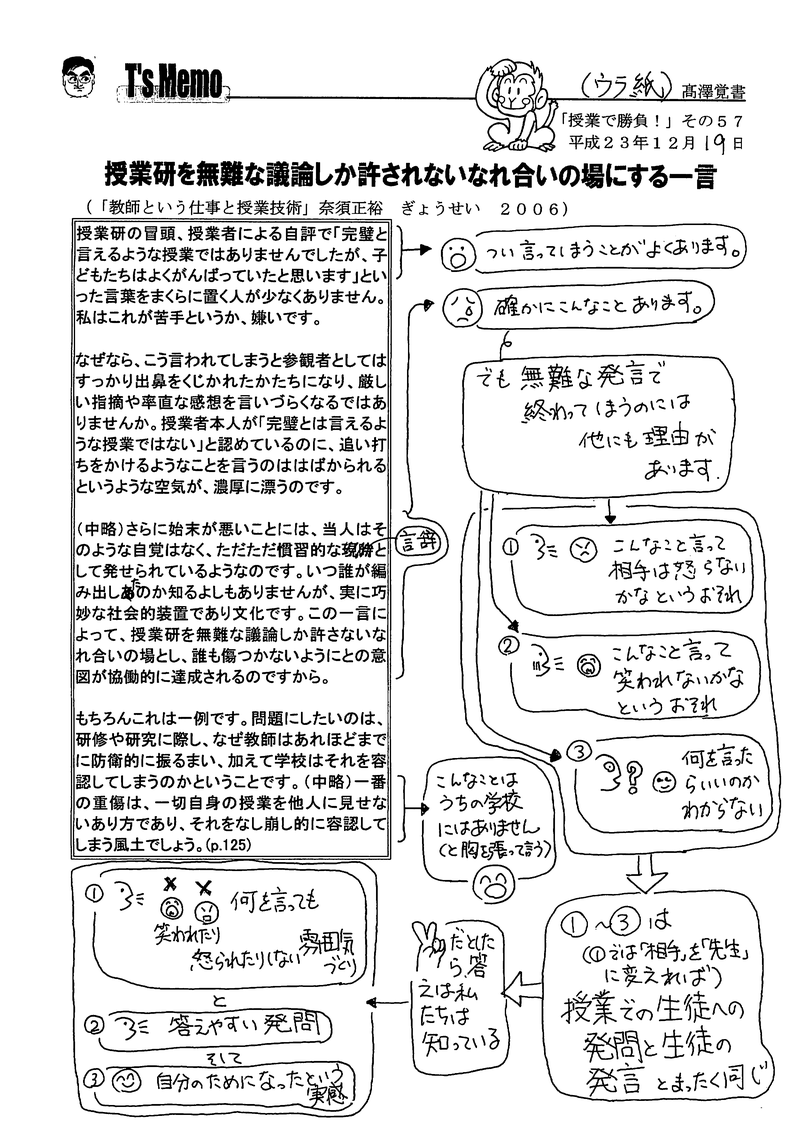 T's Memo
(ウラ紙)
髙澤覚書
「授業で勝負！」その５７
平成２３年１２月19日
授業研を無難な議論しか許されないなれ合いの場にする一言
（「教師という仕事と授業技術」奈須正裕　ぎょうせい　２００６）
授業研の冒頭、授業者による自評で「完璧と
言えるような授業ではありませんでしたが、子
どもたちはよくがんばっていたと思います」とい
った言葉をまくらに置く人が少なくありません。
私はこれが苦手というか、嫌いです。
なぜなら、こう言われてしまうと参観者としては
すっかり出鼻をくじかれたかたちになり、厳し
い指摘や率直な感想を言いづらくなるではあ
りませんか。授業者本人が「完璧とは言えるよ
うな授業ではない」と認めているのに、追い打
ちをかけるようなことを言うのははばかられる
というような空気が、濃厚に漂うのです。
（中略）さらに始末が悪いことには、当人はそ
のような自覚はなく、ただただ慣習的な言辞と
して発せられているようなのです。いつ誰が編
み出したのか知るよしもありませんが、実に巧
妙な社会的装置であり文化です。この一言に
よって、授業研を無難な議論しか許さないな
れ合いの場とし、誰も傷つかないようにとの意
図が協働的に達成されるのですから。
もちろんこれは一例です。問題にしたいのは、
研修や研究に際し、なぜ教師はあれほどまで
に防衛的に振るまい、加えて学校はそれを容
認してしまうのかということです。（中略）一番
の重傷は、一切自身の授業を他人に見せな
いあり方であり、それをなし崩し的に容認して
しまう風土でしょう。(p.125)
つい言ってしまうことがよくあります。
確かにこんなことあります。
でも無難な発言で
終わってしまうのには
他にも理由が
あります.
① こんなこと言って
相手は怒らない
かなというおそれ
② こんなこと言って
笑われないかな
というおそれ
③ 何を言った
らいいのか
わからない
こんなことは
うちの学校
にはありません
(と胸を張って言う)
①～③は
(①では「相手」を「先生」
に変えれば)
授業での生徒への
発問と生徒の
発言とまったく同じ
だとした
ら、答
えは私
たちは
知っている
① 何を言っても
笑われたり
怒られたりしない雰囲気
づくり
と
② 答えやすい発問
そして
③ 自分のためになったという
実感